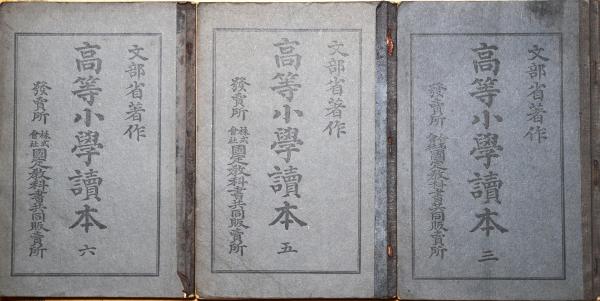 文部省著作
高等小學讀本 三
發賣所 株式會社國定教科書共同販賣所
文部省著作
高等小學讀本 五
發賣所 株式會社國定教科書共同販賣所
文部省著作
高等小學讀本 六
發賣所 株式會社國定教科書共同販賣所